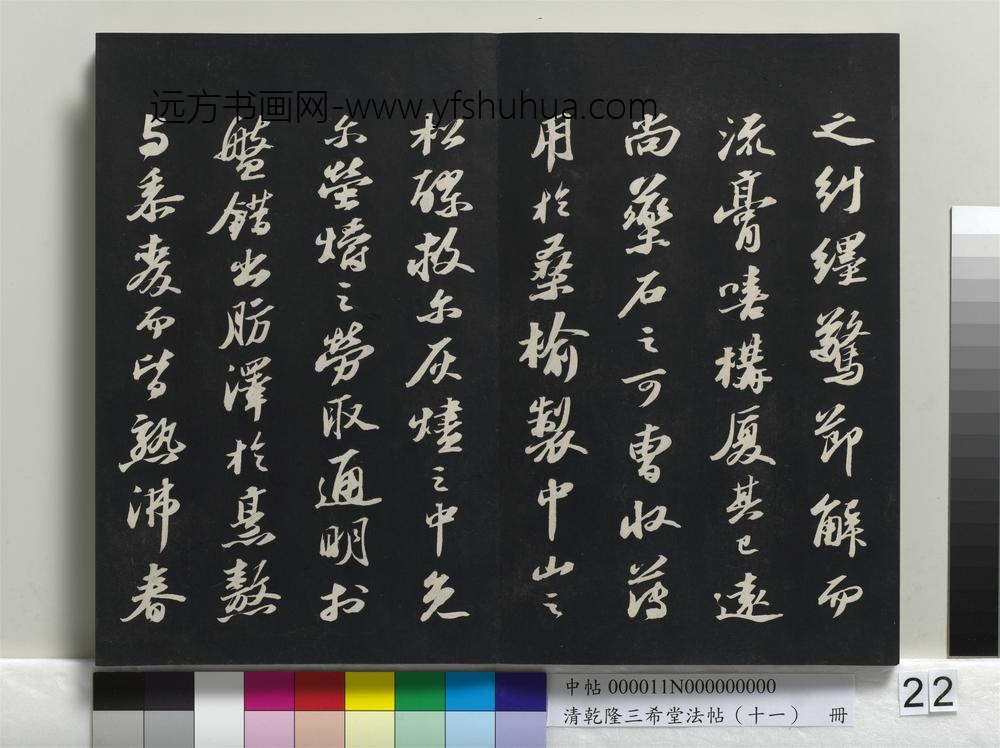 远方书画网-www.yfshuhua.com
之糾纆驚節解而
流膏嘻構厦其已遠
尚藥石之可曹收薄
用於桑榆製中山之
松醪救尒灰燼之中免
尒螢爝之勞取通明於
盤錯出肪澤於烹熬
与黍麥而皆熟沸春
中帖 000011N000000000
清乾隆三希堂法帖（十一） 冊
22